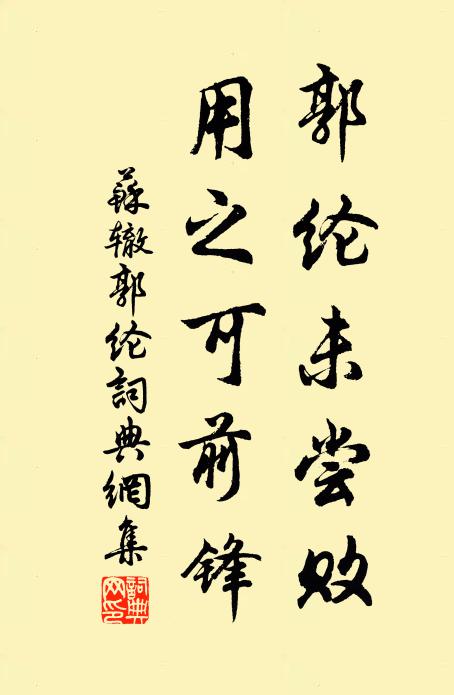 郭纶未尝败
用之可前锋
蘇辙郭纶詞典網集
詞典网印